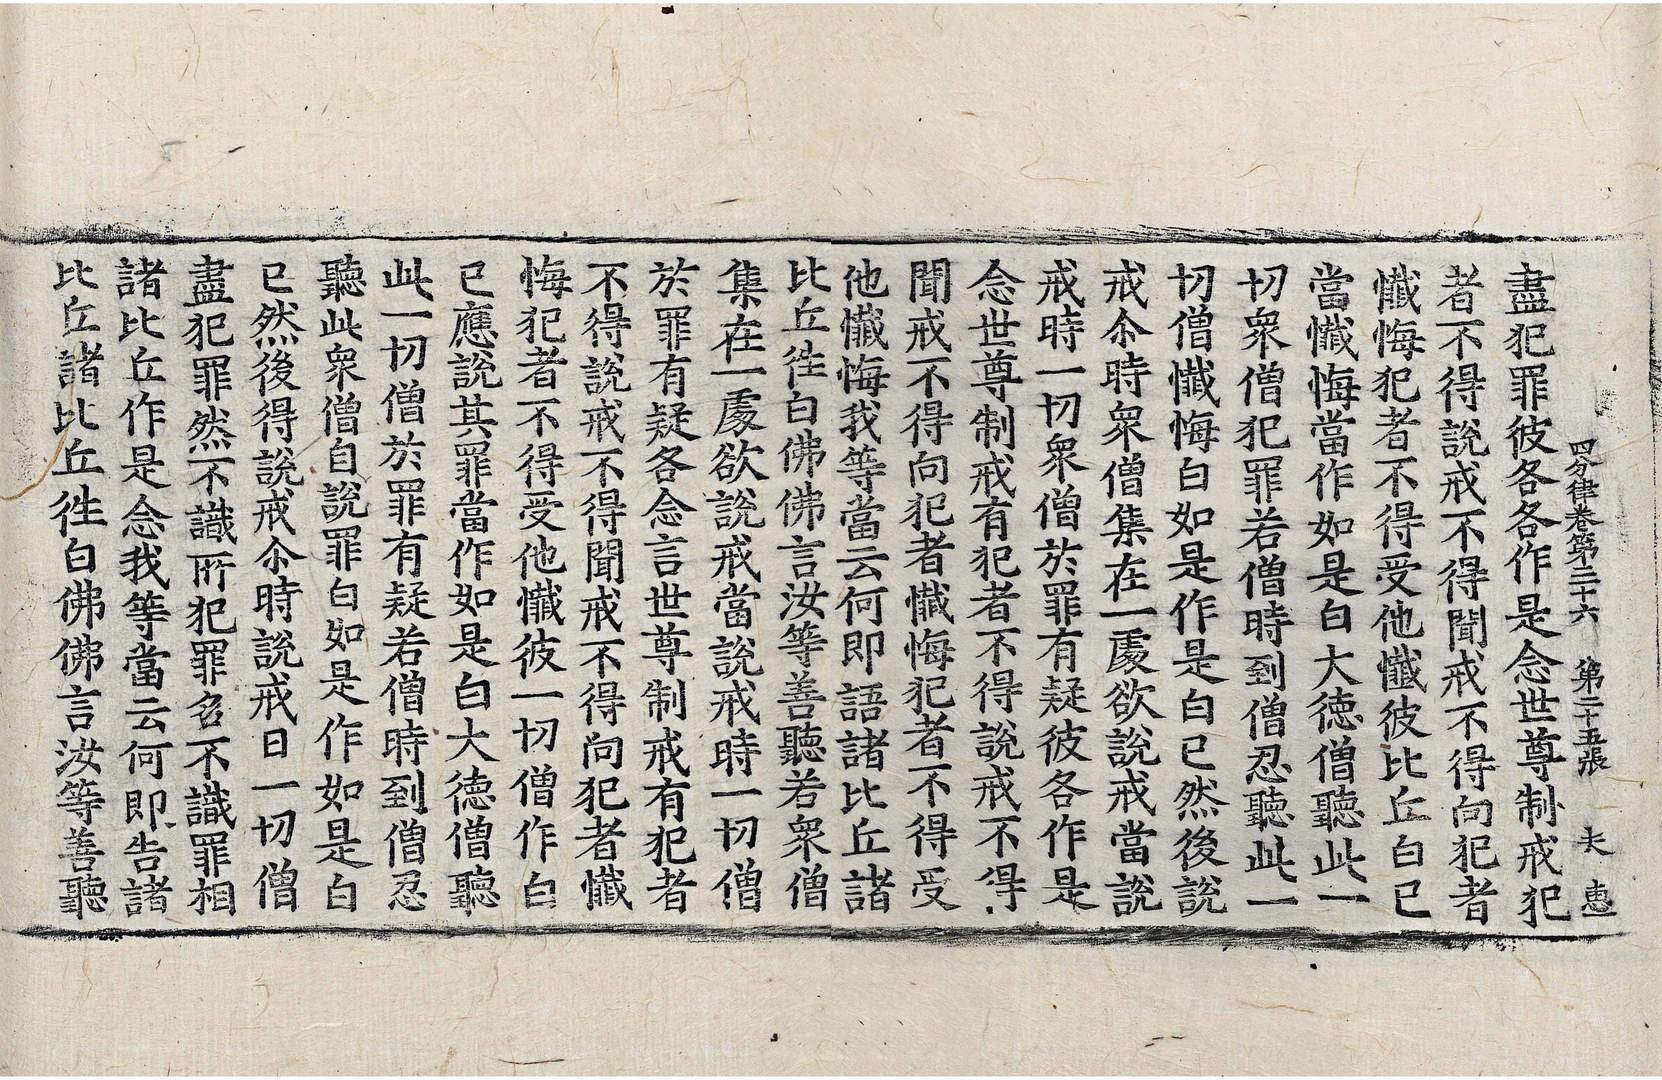 四分律卷第三十六 第二十五張 夫 惠
盡犯罪彼各各作是念世尊制戒犯
者不得說戒不得聞戒不得向犯者
懺悔犯者不得受他懺彼比丘白已
當懺悔當作如是白大德僧聽此一
切衆僧犯罪若僧時到僧忍聽此一
切僧懺悔白如是作是白已然後說
戒尒時衆僧集在一處欲說戒當說
戒時一切衆僧於罪有疑彼各作是
念世尊制戒有犯者不得說戒不得
聞戒不得向犯者懺悔犯者不得受
他懺悔我等當云何即語諸比丘諸
比丘徃白佛佛言汝等善聽若衆僧
集在一處欲說戒當說戒時一切僧
於罪有疑各念言世尊制戒有犯者
不得說戒不得聞戒不得向犯者懺
悔犯者不得受他懺彼一切僧作白
已應說其罪當作如是白大德僧聽
此一切僧於罪有疑若僧時到僧忍
聽此衆僧自說罪白如是作如是白
已然後得說戒尒時說戒日一切僧
盡犯罪然不識所犯罪名不識罪相
諸比丘作是念我等當云何即告諸
比丘諸比丘徃白佛佛言汝等善聽